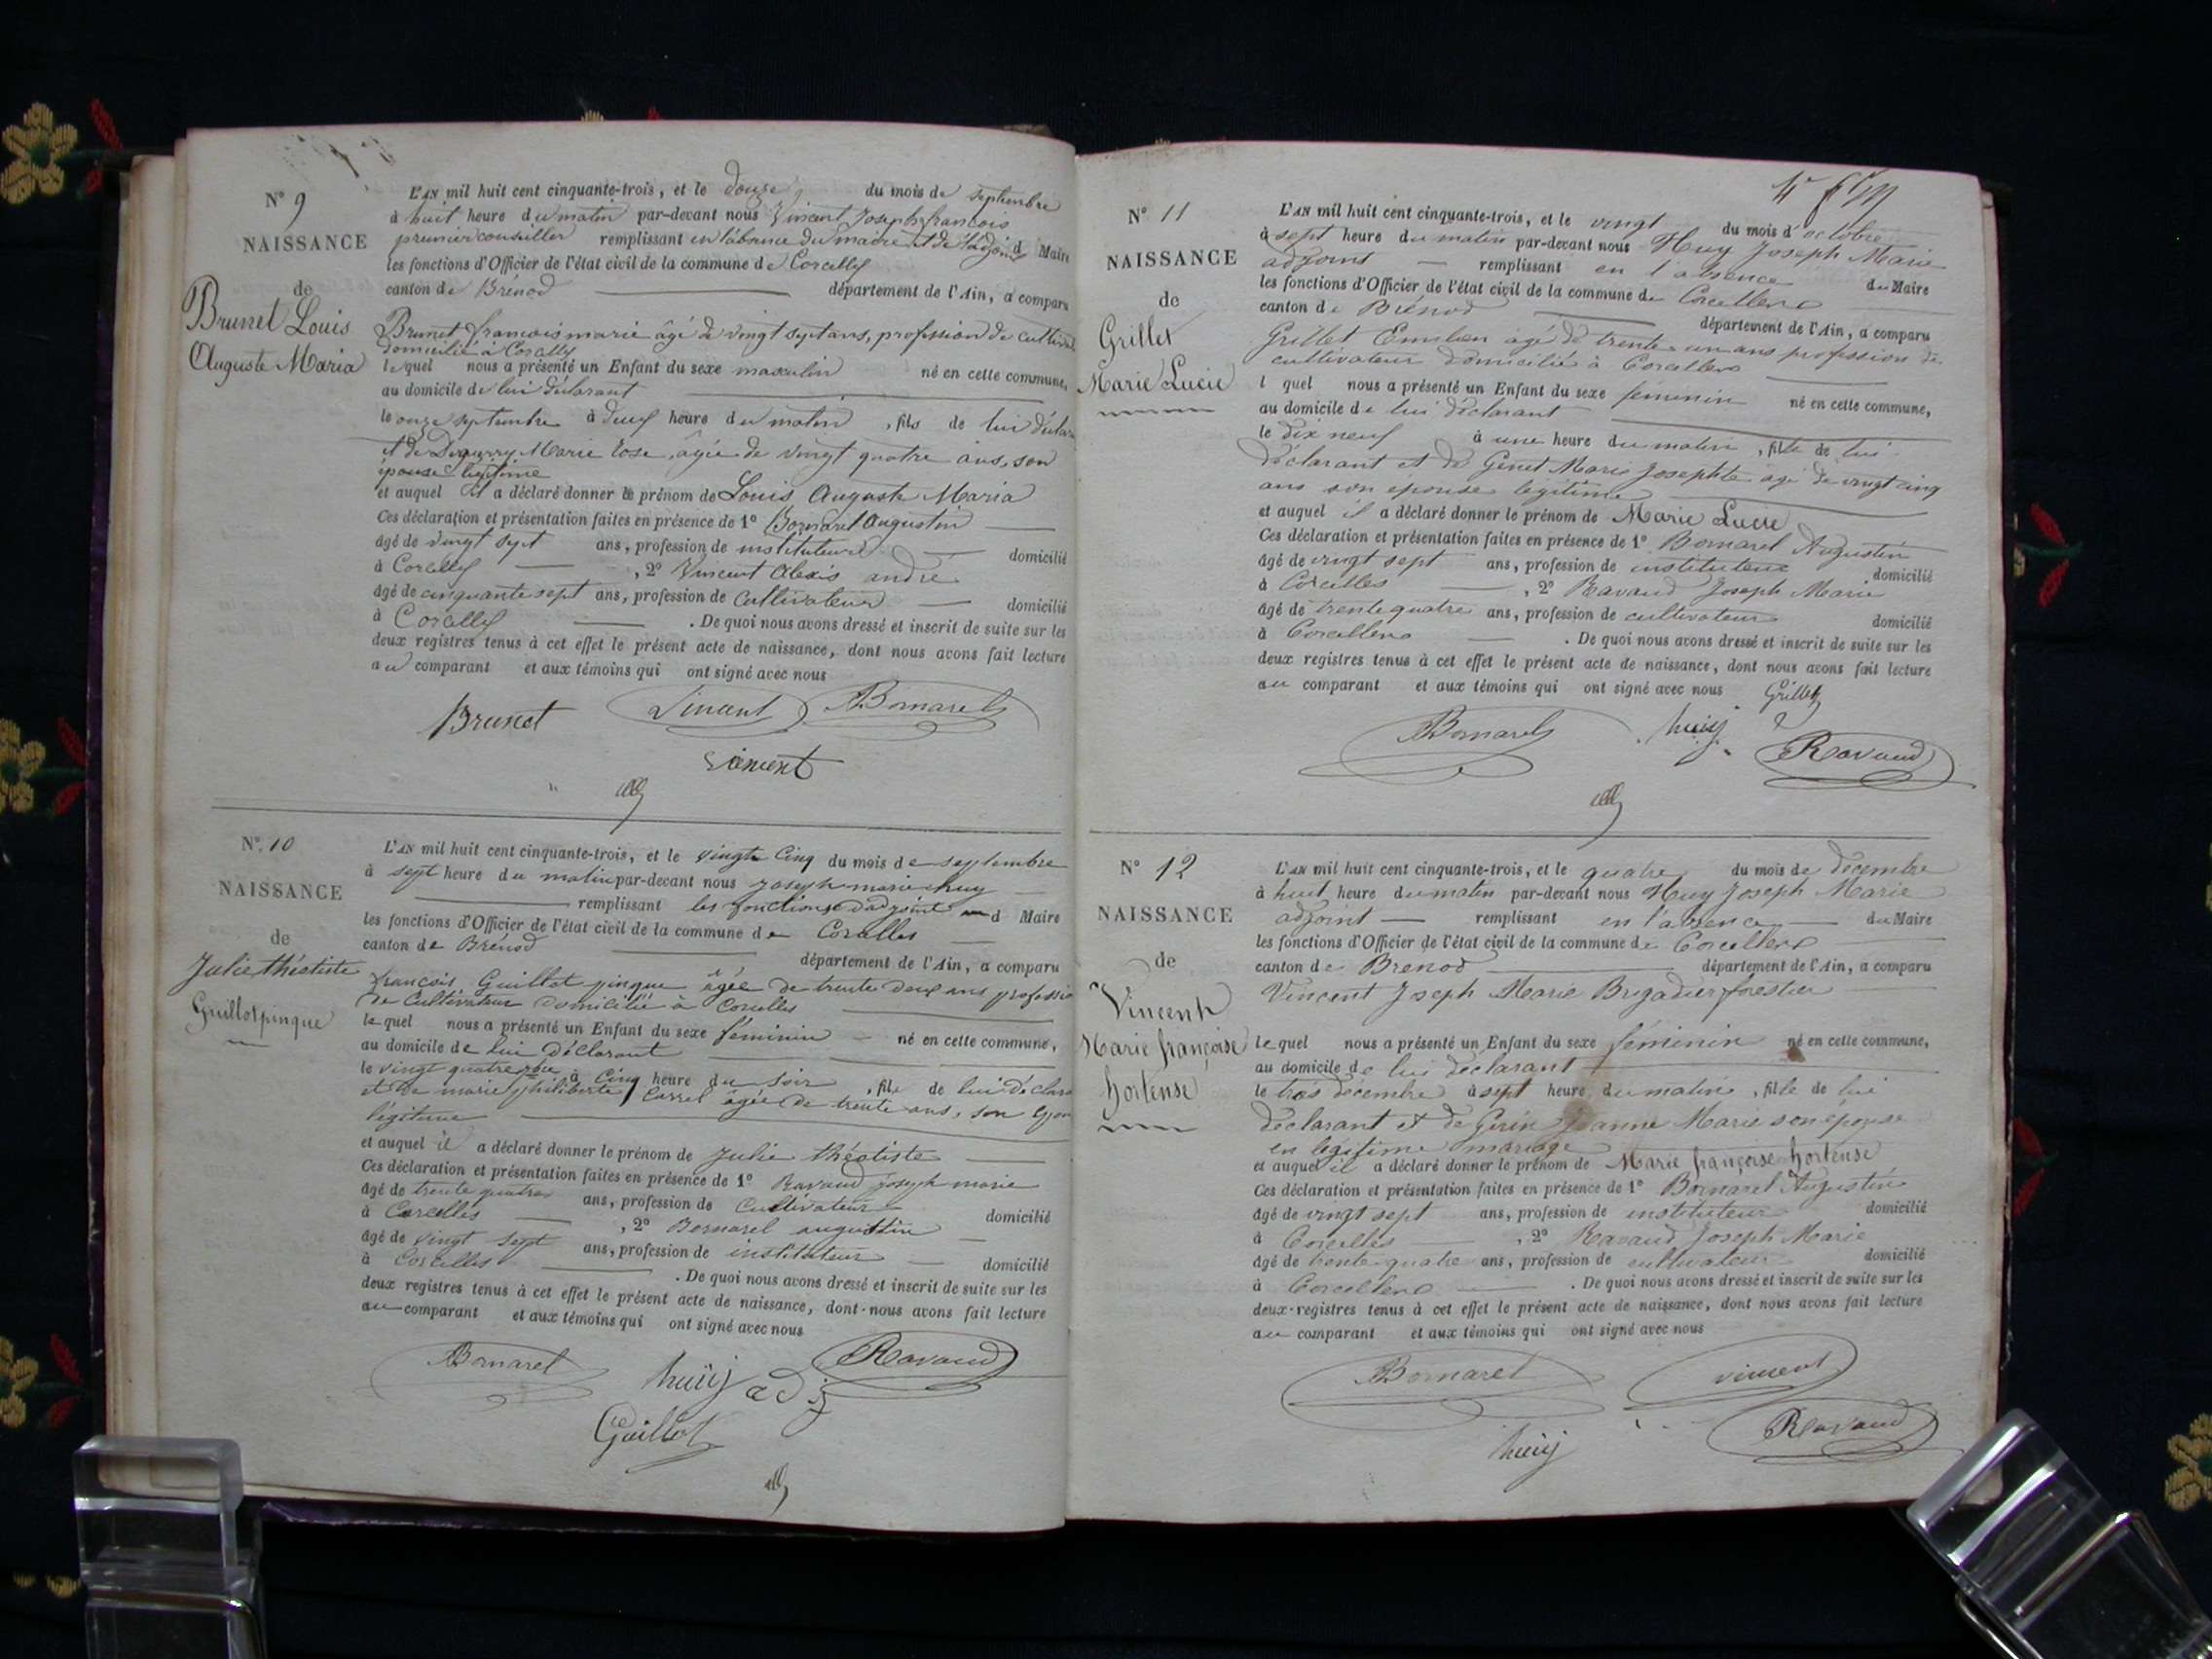 N° 9
NAISSANCE
de
Brunet Louis
Auguste Maria
L'AN mil huit cent cinquante-trois, et le douze du mois de septembre
à huit heure du matin par-devant nous Vincent Joseph françois
premier conseiller remplissant en l'absence du maire et de l'adjoint d Maire
les fonctions d'Officier de l'état civil de la commune de Corcelles
canton de Brénod département de l'Ain, a comparu
Brunet françois marie âgé de vingt sept ans, profession de cultivat
domicilié à Corcelles
lequel nous a présenté un Enfant du sexe masculin né en cette commune,
au domicile de lui déclarant
le onze septembre à deux heure du matin, fils de lui déclar
et de Marie Rose, âgée de vingt quatre ans, son
épouse légitime
et auquel il a déclaré donner le prénom de Louis Auguste Maria
Ces déclaration et présentation faites en présence de 1° Bornarel Augustin
âgé de vingt sept ans, profession de instituteur domicilié
à Corcelles, 2° Vincent Alexis andré
âgé de cinquante sept ans, profession de Cultivateur domicilié
à Corcelles. De quoi nous avons dressé et inscrit de suite sur les
deux registres tenus à cet effet le présent acte de naissance, dont nous avons fait lecture
au comparant et aux témoins qui ont signé avec nous
Brunet Vincent ABornarel
Vincent
N° 10
NAISSANCE
de
Julie théotiste
Guillotpinque
L'AN mil huit cent cinquante-trois, et le vingt Cinq du mois de septembre
à sept heure du matin par-devant nous Joseph marie huy
remplissant les fonctions d'adjoint d Maire
les fonctions d'Officier de l'état civil de la commune de Corcelles
canton de Brénod département de l'Ain, a comparu
françois Guillot pinque âgée de trente deux ans professio
de Cultivateur domicilié à Corcelles
lequel nous a présenté un Enfant du sexe féminin né en cette commune,
au domicile de lui Déclarant
le vingt quatre à Cinq heure du soir, fille de lui déclara
et de marie philiberte Carrel âgée de trente ans, son epou
légitime
et auquel il a déclaré donner le prénom de Julie théotiste
Ces déclaration et présentation faites en présence de 1° Ravaud joseph marie
âgé de trente quatre ans, profession de Cultivateur domicilié
à Corcelles, 2° Bornarel augustin
âgé de vingt sept ans, profession de instituteur domicilié
à Corcelles. De quoi nous avons dressé et inscrit de suite sur les
deux registres tenus à cet effet le présent acte de naissance, dont nous avons fait lecture
au comparant et aux témoins qui ont signé avec nous
ABornarel huij adj Ravaud
Guillot
N° 11
NAISSANCE
de
Grillet
Marie Lucie
L'AN mil huit cent cinquante-trois, et le vingt du mois d'octobre
à sept heure du matin par-devant nous Huy Joseph Marie
adjoint remplissant en l'absence du Maire
les fonctions d'Officier de l'état civil de la commune de Corcelles
canton de Brénod département de l'Ain, a comparu
Grillet Emilien agé de trente un ans profession de
cultivateur domicilié à Corcelles
l quel nous a présenté un Enfant du sexe féminin né en cette commune,
au domicile de lui déclarant
le dix neuf à une heure du matin, fille de lui
déclarant et de Genet Marie Josephte agé de vingt cinq
ans son epouse légitime
et auquel il a déclaré donner le prénom de Marie Lucie
Ces déclaration et présentation faites en présence de 1° Bornarel Augustin
âgé de vingt sept ans, profession de instituteur domicilié
à Corcelles, 2° Ravaud Joseph Marie
âgé de trente quatre ans, profession de cultivateur domicilié
à Corcelles. De quoi nous avons dressé et inscrit de suite sur les
deux registres tenus à cet effet le présent acte de naissance, dont nous avons fait lecture
au comparant et aux témoins qui ont signé avec nous Grillet
ABornarel huij Ravaud
N° 12
NAISSANCE
de
Vincent
Marie françoise
hortense
L'AN mil huit cent cinquante-trois, et le quatre du mois de décembre
à huit heure du matin par-devant nous Huy Joseph Marie
adjoint remplissant en l'absence du Maire
les fonctions d'Officier de l'état civil de la commune de Corcelles
canton de Brénod département de l'Ain, a comparu
Vincent Joseph Marie Brigadier forestier
lequel nous a présenté un Enfant du sexe féminin né en cette commune,
au domicile de lui déclarant
le trois décembre à sept heure du matin, fille de lui
déclarant et de Girin Jeanne Marie son épouse
en légitime mariage
et auquel il a déclaré donner le prénom de Marie françoise hortense
Ces déclaration et présentation faites en présence de 1° Bornarel Augustin
âgé de vingt sept ans, profession de instituteur domicilié
à Corcelles, 2° Ravaud Joseph Marie
âgé de trente quatre ans, profession de cultivateur domicilié
à Corcelles. De quoi nous avons dressé et inscrit de suite sur les
deux registres tenus à cet effet le présent acte de naissance, dont nous avons fait lecture
au comparant et aux témoins qui ont signé avec nous
ABornarel vincent
huij Ravaud